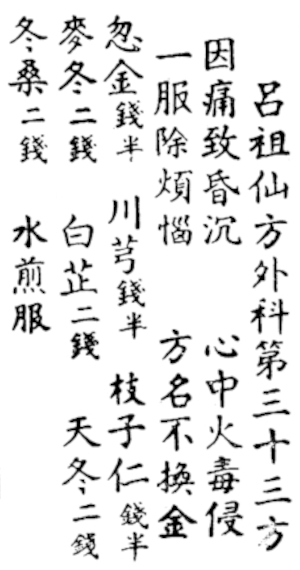 呂祖仙方外科第三十三方
因痛致昏沉 心中火毒侵
一服除煩惱 方名不換金
忽金錢半 川芎錢半 枝子仁錢半
麥冬二錢 白芷二錢 天冬二錢
冬桑二錢 水煎服